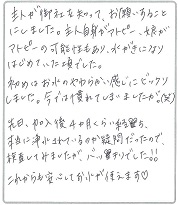 主人が御社を知って、お願いすること
にしました。主人自身がアトピー、娘が
アトピーの可能性もあり、水が気になり
はじめていた頃でした。
初めはお水のやわらかい感じにビックリ
しました。今では慣れてしまいましたが(笑)
先日、加入後4ヶ月くらい経ち、
本当に浄水されているのか疑問だったので、
検査してみましたが、バッチリでした!!
これからも安心してお水が使えます♡